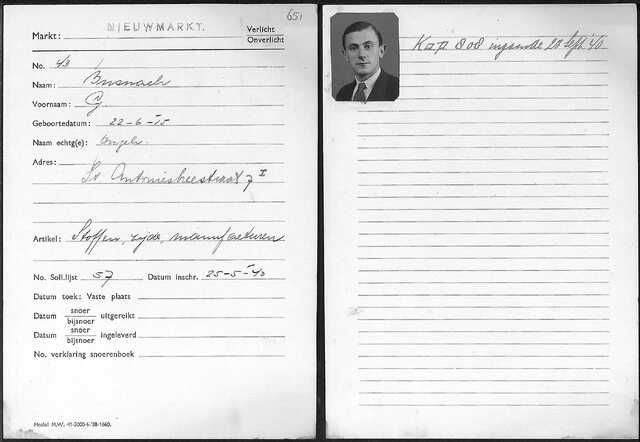 651
Markt: NIEUWMARKT. Verlicht
Onverlicht
No. 43
Naam: Busnach
Voornaam: G
Geboortedatum: 22-6-15
Naam echtg(e): Ongeh.
Adres:
St Antoniesbreestraat 7 I
Artikel: Stoffen, zijde, manufacturen
No. Soll.lijst 57 Datum inschr. 25-5-40
Datum toek: Vaste plaats
Datum snoer
bijsnoer uitgereikt
Datum snoer
bijsnoer ingeleverd
No. verklaring snoerenboek
Model M.W.
Kap 808 20 Sept '40